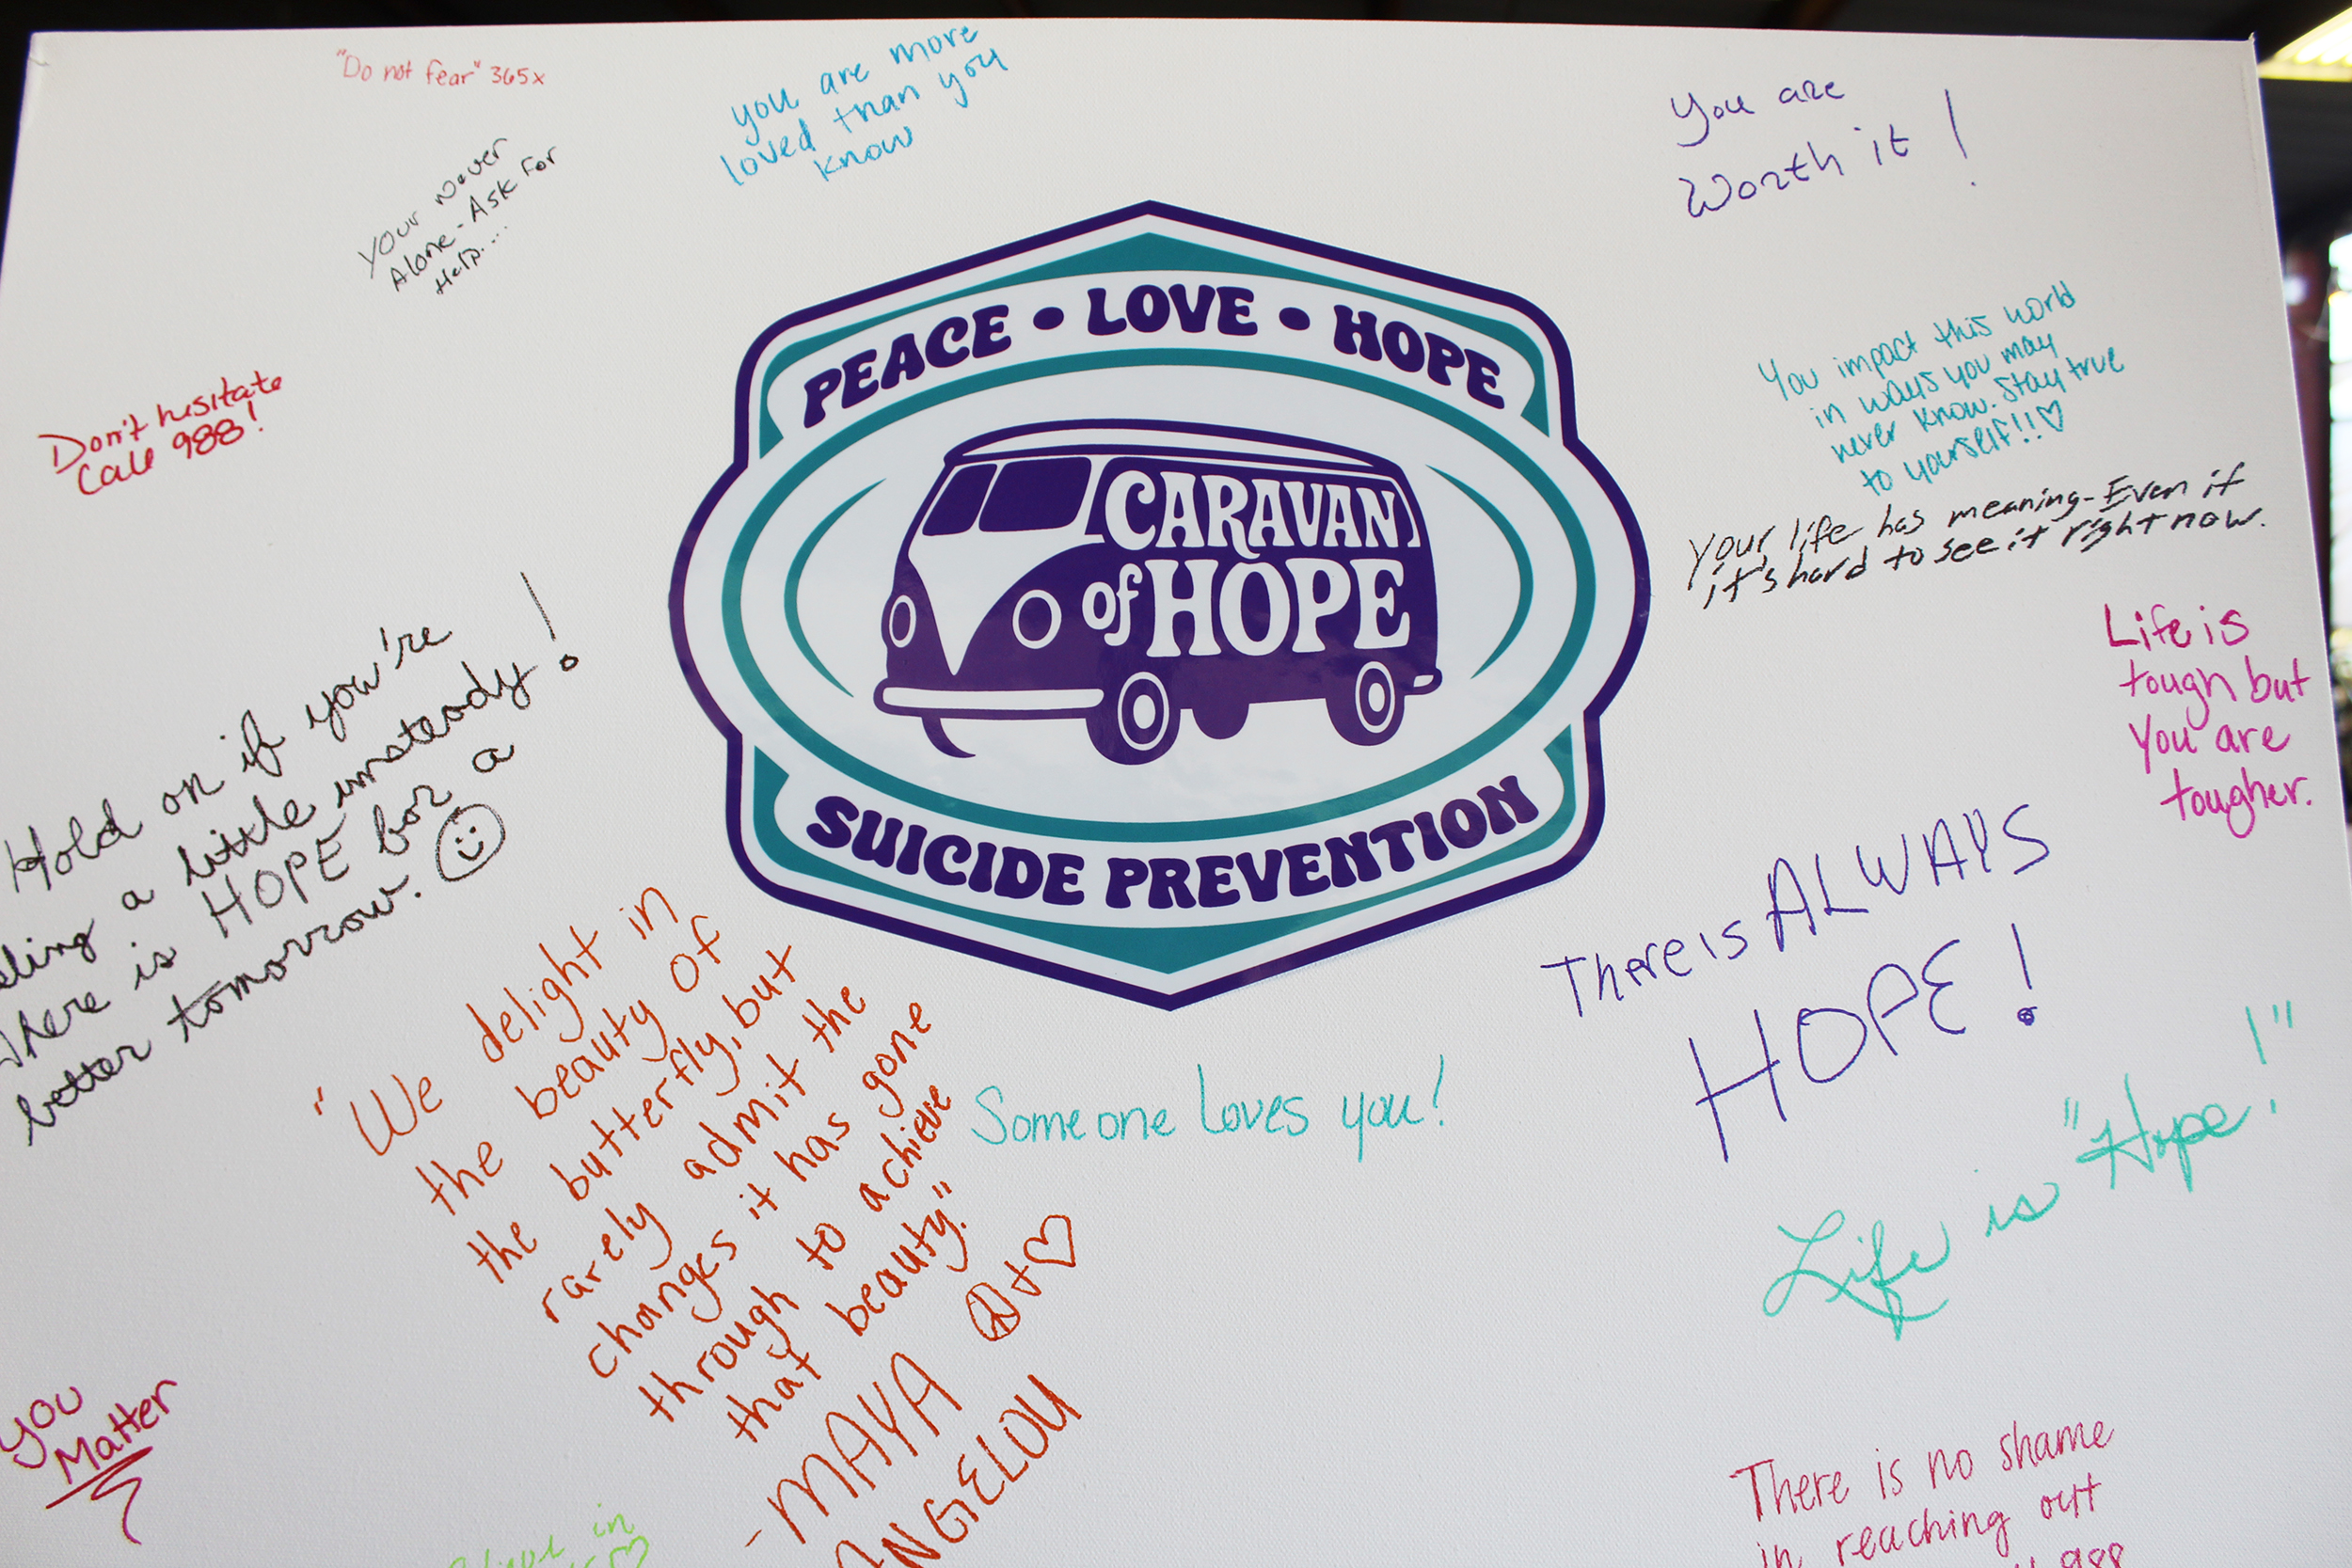 "Do not fear" 365x
you are more
loved than you
know
You are
Worth it!
Your never
Alone - Ask For
Help....
Don't hesitate
Call 988!
PEACE • LOVE • HOPE
CARAVAN
of HOPE
SUICIDE PREVENTION
You impact this world
in ways you may
never know. Stay true
to yourself!!♡
Your life has meaning - Even if
it's hard to see it right now.
Life is
tough but
you are
tougher.
Hold on if you're
a little unsteady!
There is HOPE for a
better tomorrow. ☺
There is ALWAYS
HOPE!
"We delight in
the beauty of
the butterfly, but
rarely admit the
changes it has gone
through to achieve
that beauty."
☮+♡
- MAYA
ANGELOU
Someone loves you!
Life is "Hope!"
You
Matter
in
There is no shame
in reaching out
988